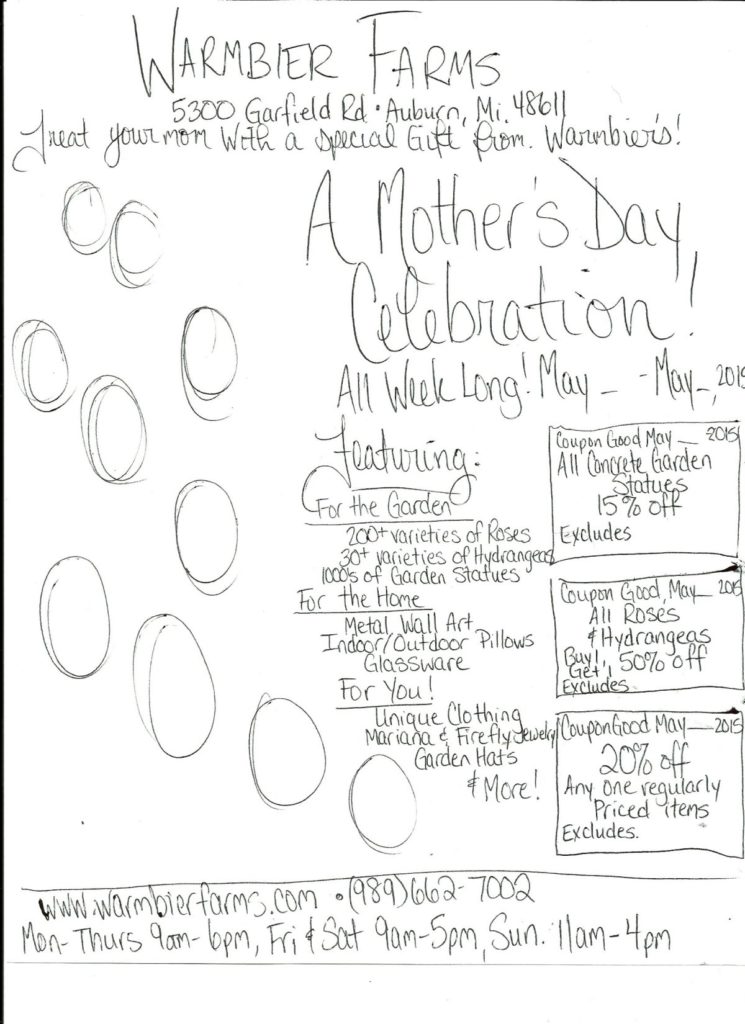 WARMBIER FARMS
5300 Garfield Rd • Auburn, Mi. 48611
Treat your mom With a special Gift from Warmbier's!
A Mother's Day
Celebration!
All Week Long! May _ - May _, 2015
Featuring:
For the Garden
200+ varieties of Roses
30+ varieties of Hydrangeas
1000's of Garden Statues
For the Home
Metal Wall Art
Indoor/Outdoor Pillows
Glassware
For You!
Unique Clothing
Mariana & Firefly Jewelry
Garden Hats
& More!
Coupon Good May __ 2015
All Concrete Garden
Statues
15% off
Excludes
Coupon Good May __ 2015
All Roses
& Hydrangeas
Buy 1, Get 1 50% off
Excludes
Coupon Good May __ 2015
20% off
Any one regularly
Priced items
Excludes.
www.warmbierfarms.com • (989) 662-7002
Mon-Thurs 9am-6pm, Fri & Sat 9am-5pm, Sun. 11am-4pm